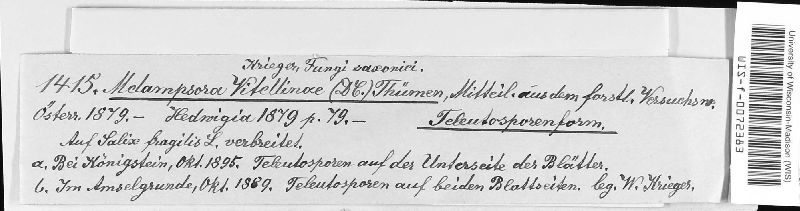 Krieger, Fungi saxonici.
1415. Melampsora Vitellinae (DC.) Thümen, Mitteil. aus dem forstl. Versuchsw.
Österr. 1879. — Hedwigia 1879 p. 79. — Teleutosporenform.
Auf Salix fragilis L. verbreitet.
a. Bei Königstein, Okt. 1895. Teleutosporen auf der Unterseite der Blätter.
b. Im Amselgrunde, Okt. 1889. Teleutosporen auf beiden Blattseiten. leg. W. Krieger.
University of Wisconsin-Madison (WIS)
WIS-f-0072383